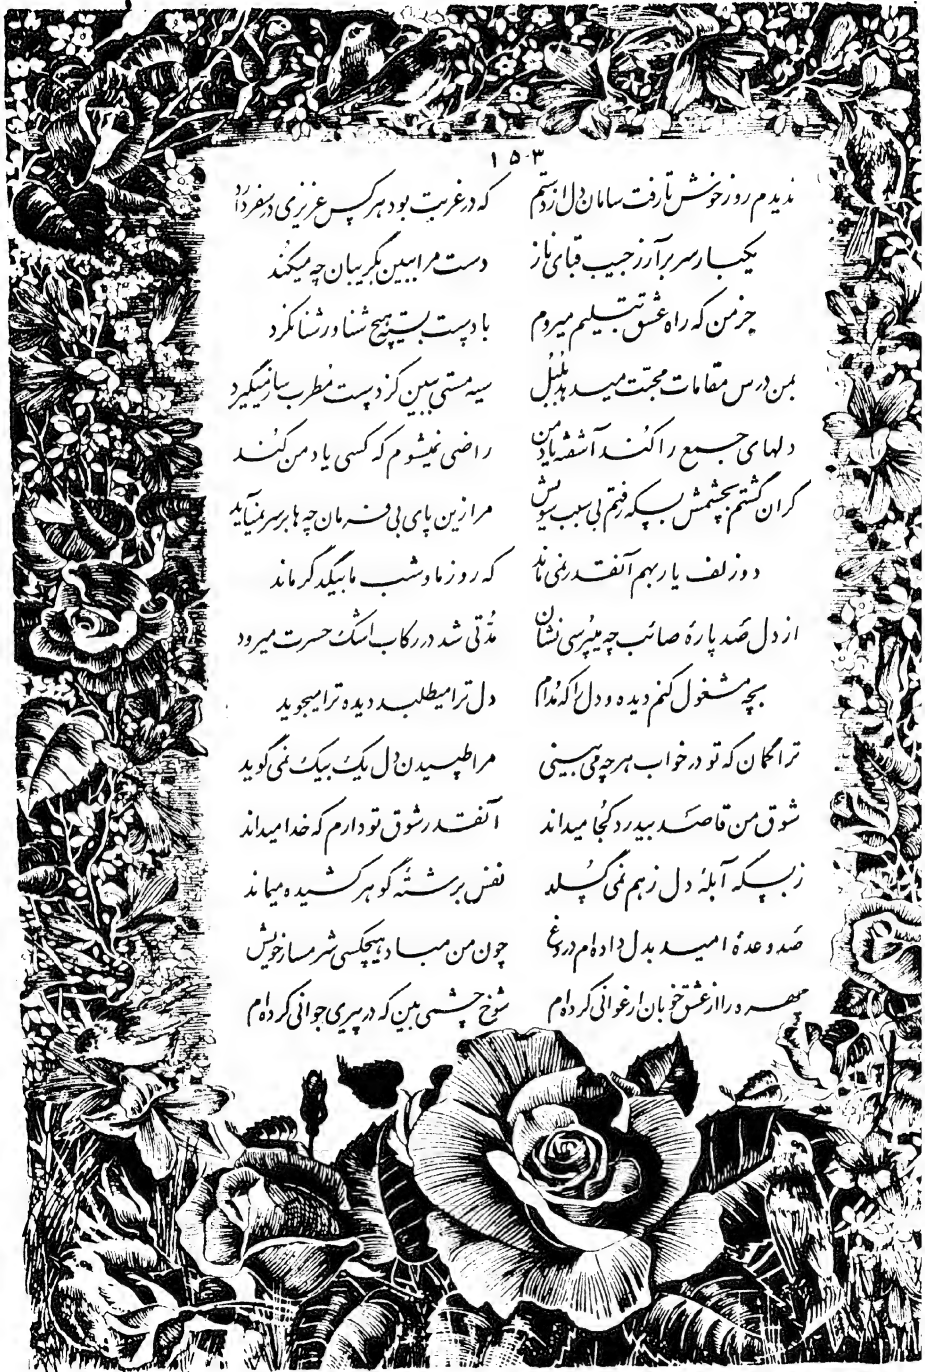 ۱۵۰۳
ندیدم روز خوش تا رفت سامان دل از دستم که در غربت بود هرکس عزیزی در سفر دارد
یکبار سر برآر ز جیب قبای ناز دست مرا ببین بگریبان چه میکند
جز من که راه عشق بتسلیم میروم با دست بسته هیچ شناور شنا نکرد
بمن درس مقامات محبت میدهد بلبل سیه مستی ببین کز دست مطرب ساز میگیرد
دلهای جمع را کند آشفته یاد من راضی نمیشوم که کسی یاد من کند
گران گشتم بچشمش بسکه رفتم بی سبب سویش مرا زین پای بی فرمان چه ها بر سر نمیآید
دو زلف یار بهم آنقدر نمی ماند که روز ما و شب ما بیکدگر ماند
از دل صد پارهٔ صائب چه میپرسی نشان مدتی شد در رکاب اشک حسرت میرود
بچه مشغول کنم دیده و دل را که مدام دل ترا میطلبد دیده ترا میجوید
ترا گمان که تو در خواب هرچه می بینی مرا طپیدن دل یک بیک نمی گوید
شوق من قاصد بیدرد کجا میداند آنقدر شوق تو دارم که خدا میداند
ز بسکه آبلهٔ دل ز هم نمی گسلد نفس برشتهٔ گوهر کشیده میماند
صد وعدهٔ امید بدل داده ام دروغ چون من مباد هیچکسی شرمسار خویش
چهره را از عشق خوبان ارغوانی کرده ام شوخ چشمی بین که در پیری جوانی کرده ام